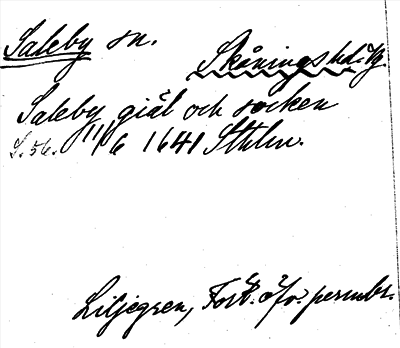 Saleby sn. Skånings hd. Vg.
Saleby giäl och socken
S. 56. 11/6 1641 Sthlm.
Liljegren, Fört. öfv. permbr.